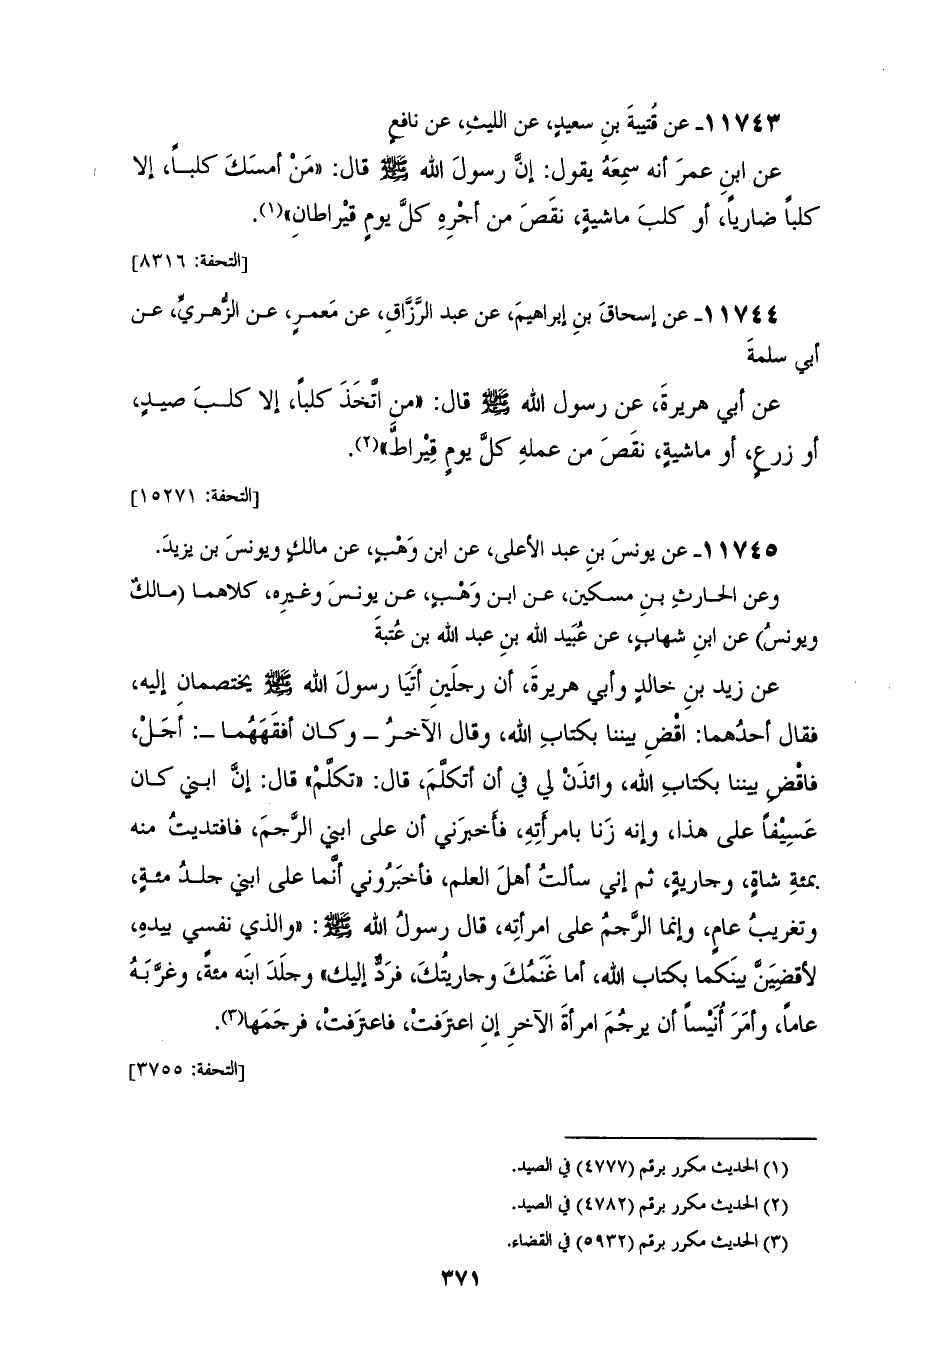 ١١٧٤٣ـ عن قُتيبةَ بنِ سعيدٍ، عن الليثِ، عن نافعٍ
عن ابنِ عمرَ أنه سمِعَهُ يقول: إنَّ رسولَ الله ﷺ قال: «مَنْ أمسَكَ كلبـاً، إلا
كلباً ضارياً، أو كلبَ ماشيةٍ، نقَصَ من أجْرِهِ كلَّ يومٍ قيْراطانِ»(١).
[التحفة: ٨٣١٦]
١١٧٤٤ـ عن إسحاقَ بنِ إبراهيمَ، عن عبد الرَّزَّاقِ، عن مَعمرٍ، عـن الزُّهـريِّ، عـن
أبي سلمةَ
عن أبي هريرةَ، عن رسول الله ﷺ قال: «من اتَّخَذَ كلباً، إلا كلـبَ صيـدٍ،
أو زرعٍ، أو ماشيةٍ، نقَصَ من عملهِ كلَّ يومٍ قِيْراطٌ»(٢).
[التحفة: ١٥٢٧١]
١١٧٤٥ـ عن يونسَ بنِ عبد الأعلى، عن ابن وَهْبٍ، عن مالكٍ ويونسَ بن يزيدَ.
وعن الحـارثِ بـنِ مسـكين، عـن ابـن وَهْـبٍ، عـن يونـسَ وغـيرِه، كلاهمـا (مـالكٌ
ويونسُ) عن ابنِ شهابٍ، عن عُبَيد الله بنِ عبد الله بن عُتبةَ
عن زيد بنِ خالدٍ وأبي هريرةَ، أن رجلَينِ أتَيَا رسولَ الله ﷺ يختصمانِ إليه،
فقال أحدُهما: اقْضِ بيننا بكتابِ الله، وقال الآخـرُ ـ وكـان أفقَهَهُمـا ـ: أجَـلْ،
فاقْضِ بيننا بكتابِ الله، وائذَنْ لي في أن أتكلَّمَ، قال: «تكلَّمْ» قال: إنَّ ابـني كـان
عَسِيْفاً على هذا، وإنه زَنا بامرأتِهِ، فأخبرَني أن على ابني الرَّجمَ، فافتديتُ منه
بمئةِ شاةٍ، وجاريةٍ، ثم إني سألتُ أهلَ العلم، فأخبَرُوني أنَّما على ابني جلـدُ مئـةٍ،
وتغريبُ عامٍ، وإنما الرَّجمُ على امرأتِه، قال رسولُ الله ﷺ: «والذي نفسي بيدهِ،
لأقضِيَنَّ بينَكما بكتاب الله، أما غَنَمُكَ وجاريتُكَ، فرَدٌّ إليك» وجلَدَ ابنَه مئةً، وغرَّبَـهُ
عاماً، وأمَرَ أُنَيْساً أن يرجُمَ امرأةَ الآخرِ إنِ اعترَفتْ، فاعترَفتْ، فرجَمَها(٣).
[التحفة: ٣٧٥٥]
(١) الحديث مكرر برقم (٤٧٧٧) في الصيد.
(٢) الحديث مكرر برقم (٤٧٨٢) في الصيد.
(٣) الحديث مكرر برقم (٥٩٣٢) في القضاء.
٣٧١